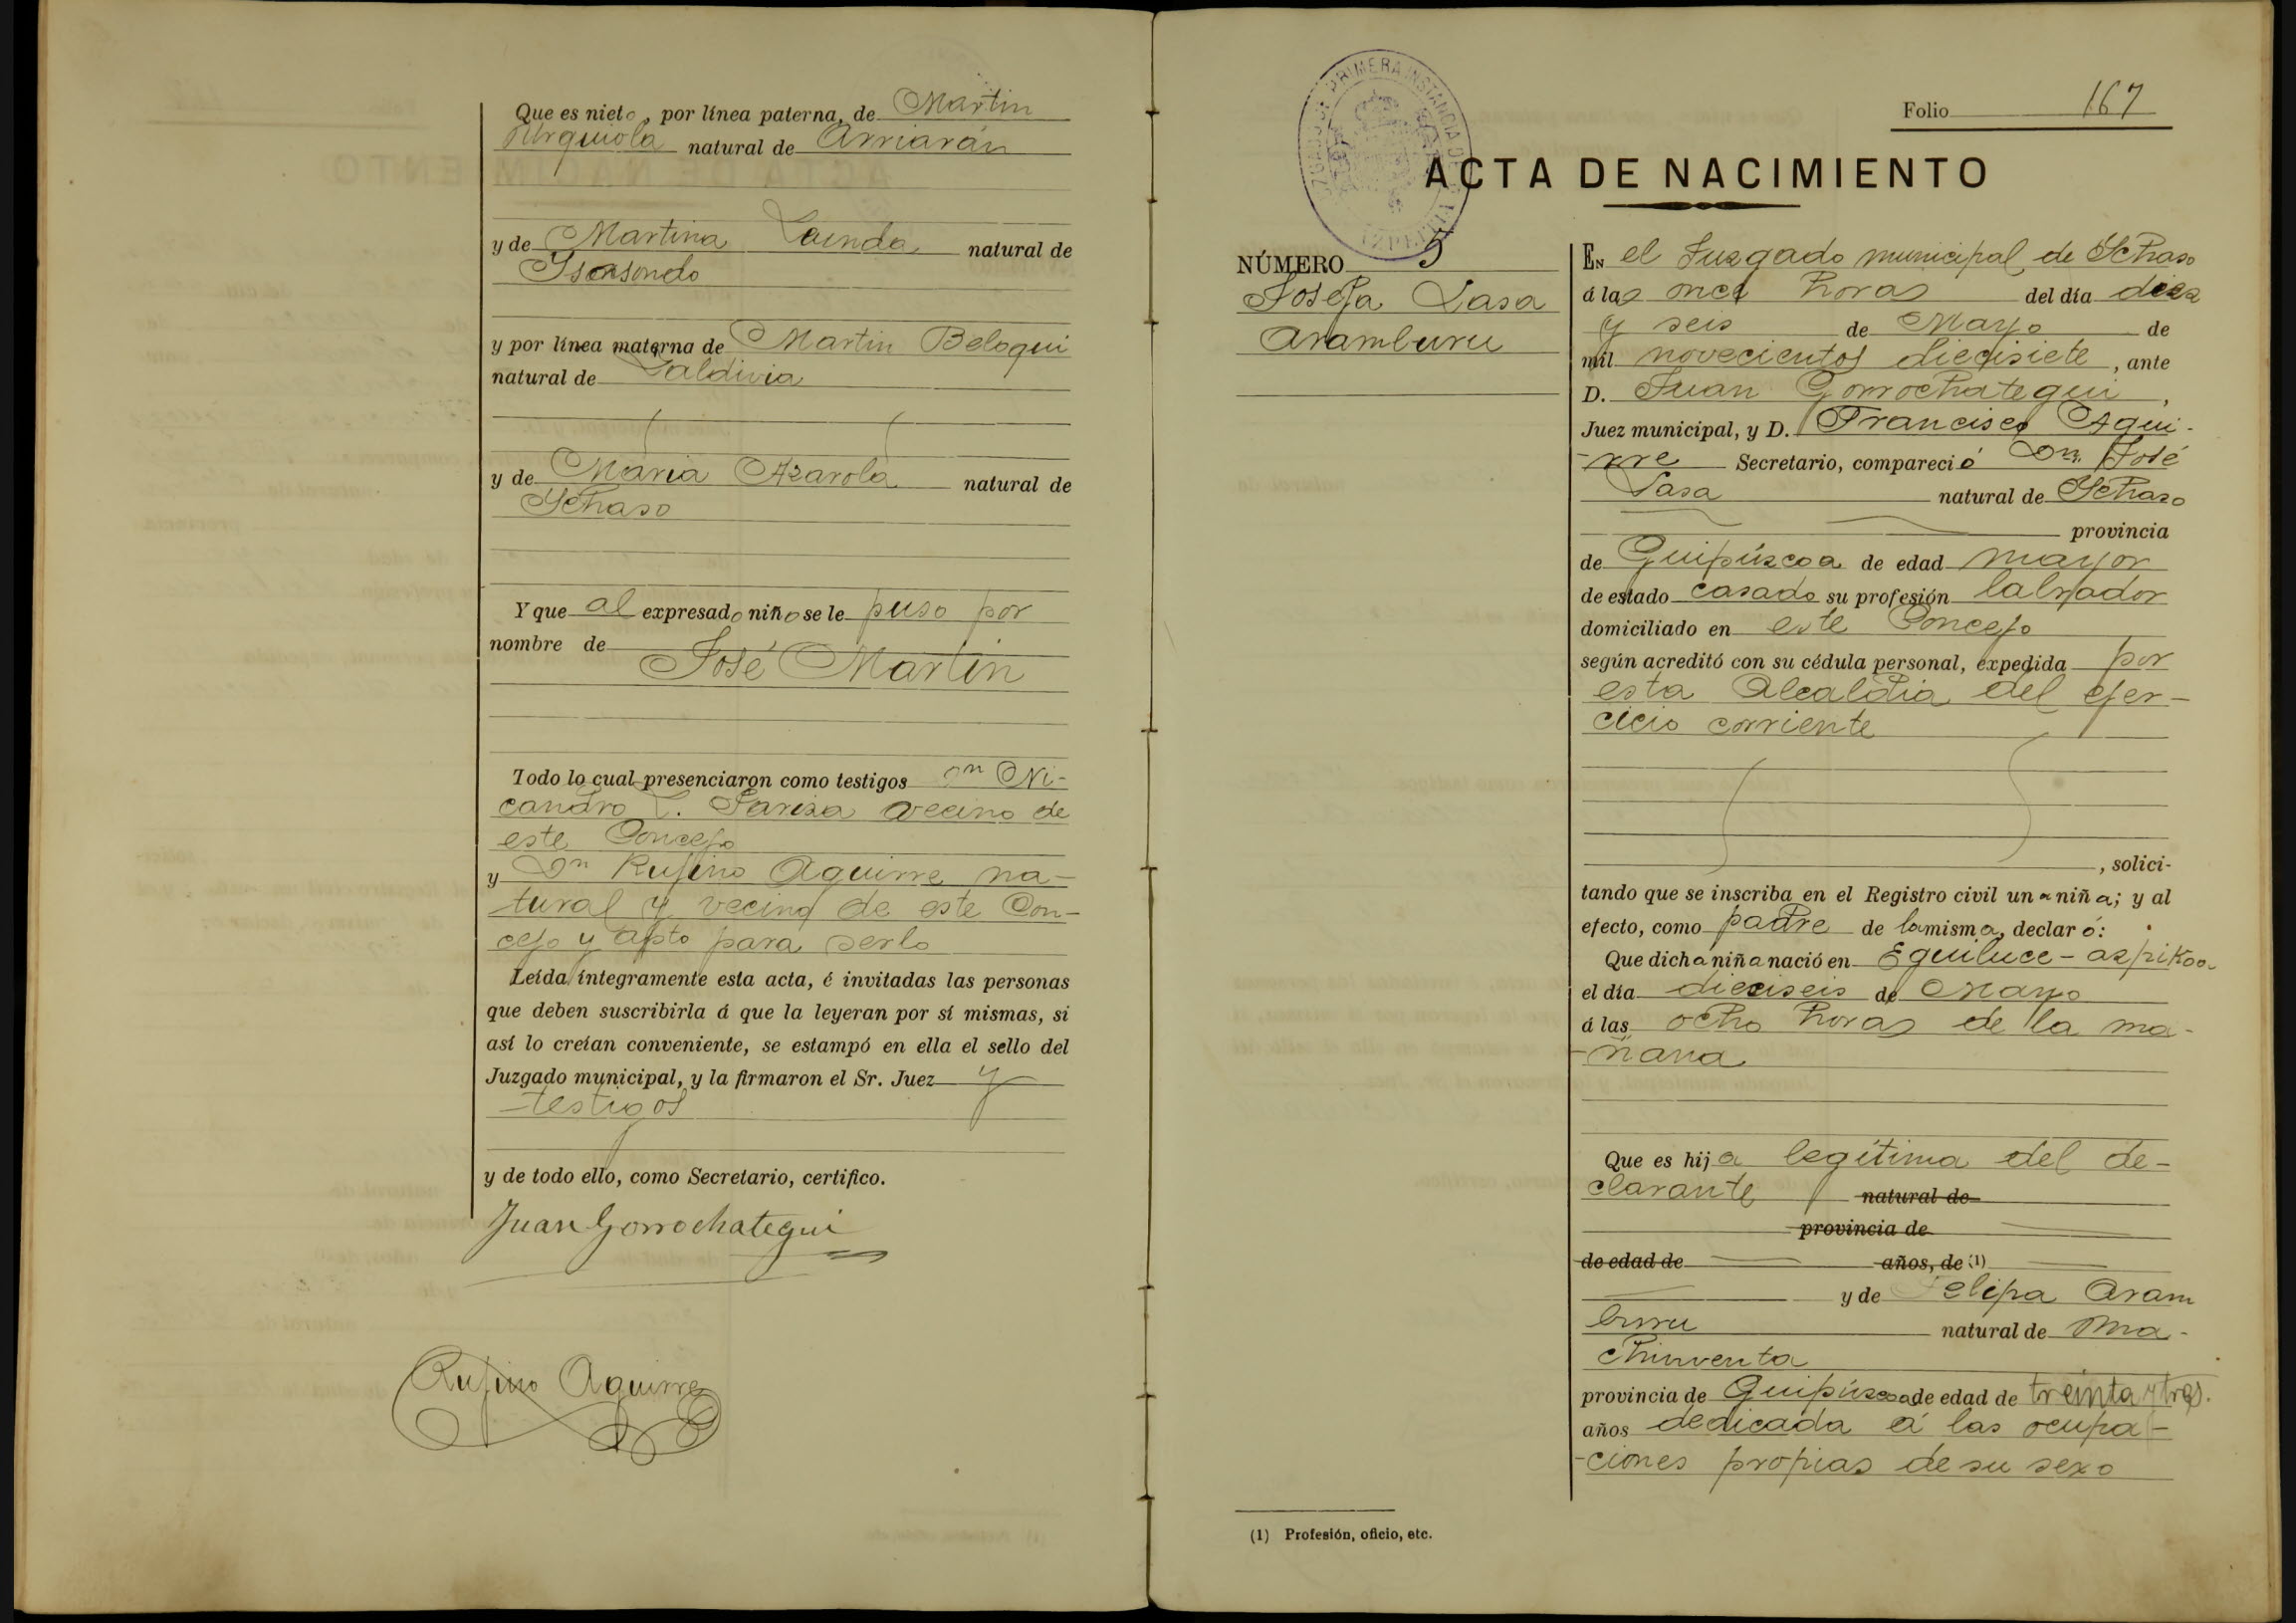 Que es nieto, por línea paterna, de Martin
Urquiola natural de Arriarán
y de Martina Zaunda natural de
Ysasondo
y por línea materna de Martin Beloqui
natural de Zaldivia
y de Maria Azarola natural de
Ychaso
Y que al expresado niño se le puso por
nombre de
José Martin
Todo lo cual presenciaron como testigos Dn Ni-
candro L. Pariza vecino de
este Concejo
y Dn Rufino Aguirre na-
tural y vecino de este Con-
cejo y apto para serlo
Leída íntegramente esta acta, é invitadas las personas
que deben suscribirla á que la leyeran por sí mismas, si
así lo creían conveniente, se estampó en ella el sello del
Juzgado municipal, y la firmaron el Sr. Juez y
testigos
y de todo ello, como Secretario, certifico.
Juan Gorrochategui
Rufino Aguirre
Folio 167
JUZGADO DE PRIMERA INSTANCIA DE AZPEITIA
ACTA DE NACIMIENTO
NÚMERO 5
Josefa Lasa
Aramburu
En el Juzgado municipal de Ychaso
á las once horas del día diez
y seis de Mayo de
mil novecientos diecisiete, ante
D. Juan Gorrochategui,
Juez municipal, y D. Francisco Agui-
-rre Secretario, compareció Dn. José
Lasa natural de Ychaso
provincia
de Guipúzcoa de edad mayor
de estado casado su profesión labrador
domiciliado en este Concejo
según acreditó con su cédula personal, expedida por
esta Alcaldia del ejer-
cicio corriente
, solici-
tando que se inscriba en el Registro civil una niña; y al
efecto, como padre de la misma, declaró:
Que dicha niña nació en Eguiluce-azpikoa
el día dieciseis de Mayo
á las ocho horas de la ma-
-ñana
Que es hija legítima del de-
clarante natural de
provincia de
de edad de años, de (1)
y de Felipa Aram
buru natural de Ma-
chinventa
provincia de Guipúzcoa de edad de treinta y tres.
años dedicada á las ocupa-
-ciones propias de su sexo
(1) Profesión, oficio, etc.